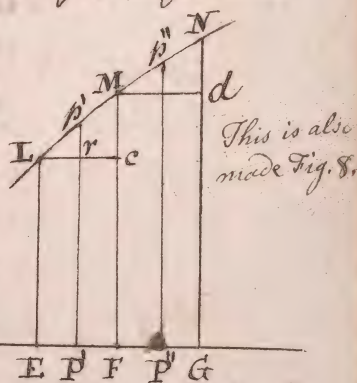 N
p"
M
d
p'
This is also
made Fig. 8.
L
r
c
E P' F P" G